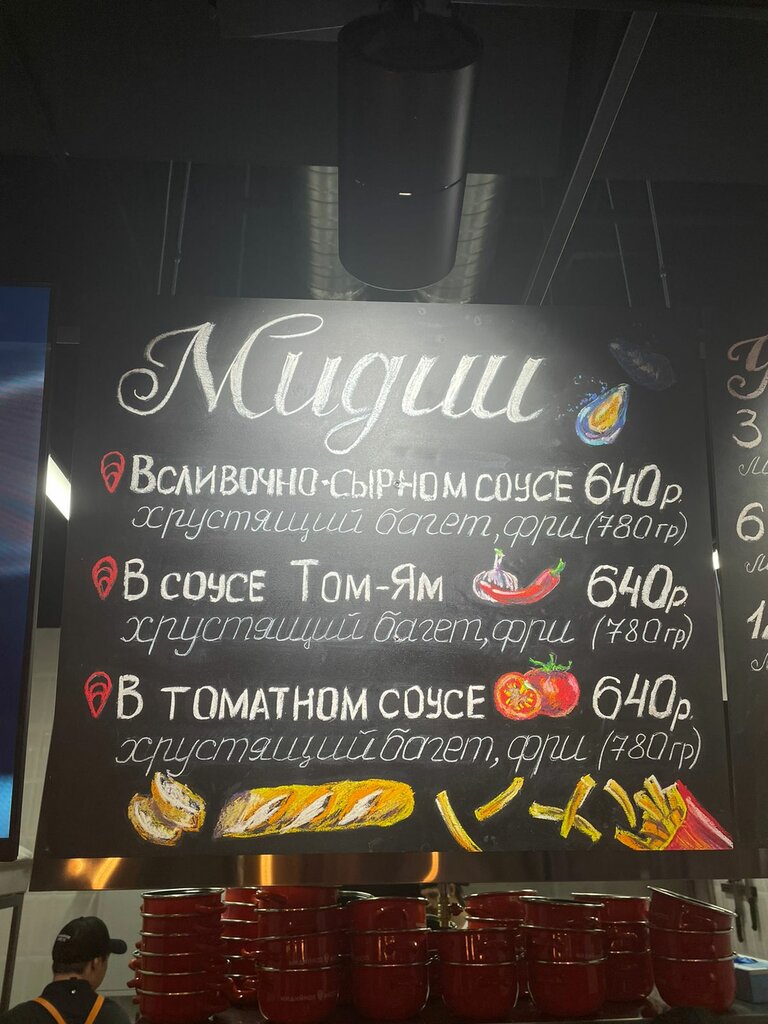 Мидии
В сливочно-сырном соусе 640р.
хрустящий багет, фри (780гр)
В соусе Том-Ям 640р.
хрустящий багет, фри (780гр)
В томатном соусе 640р.
хрустящий багет, фри (780гр)